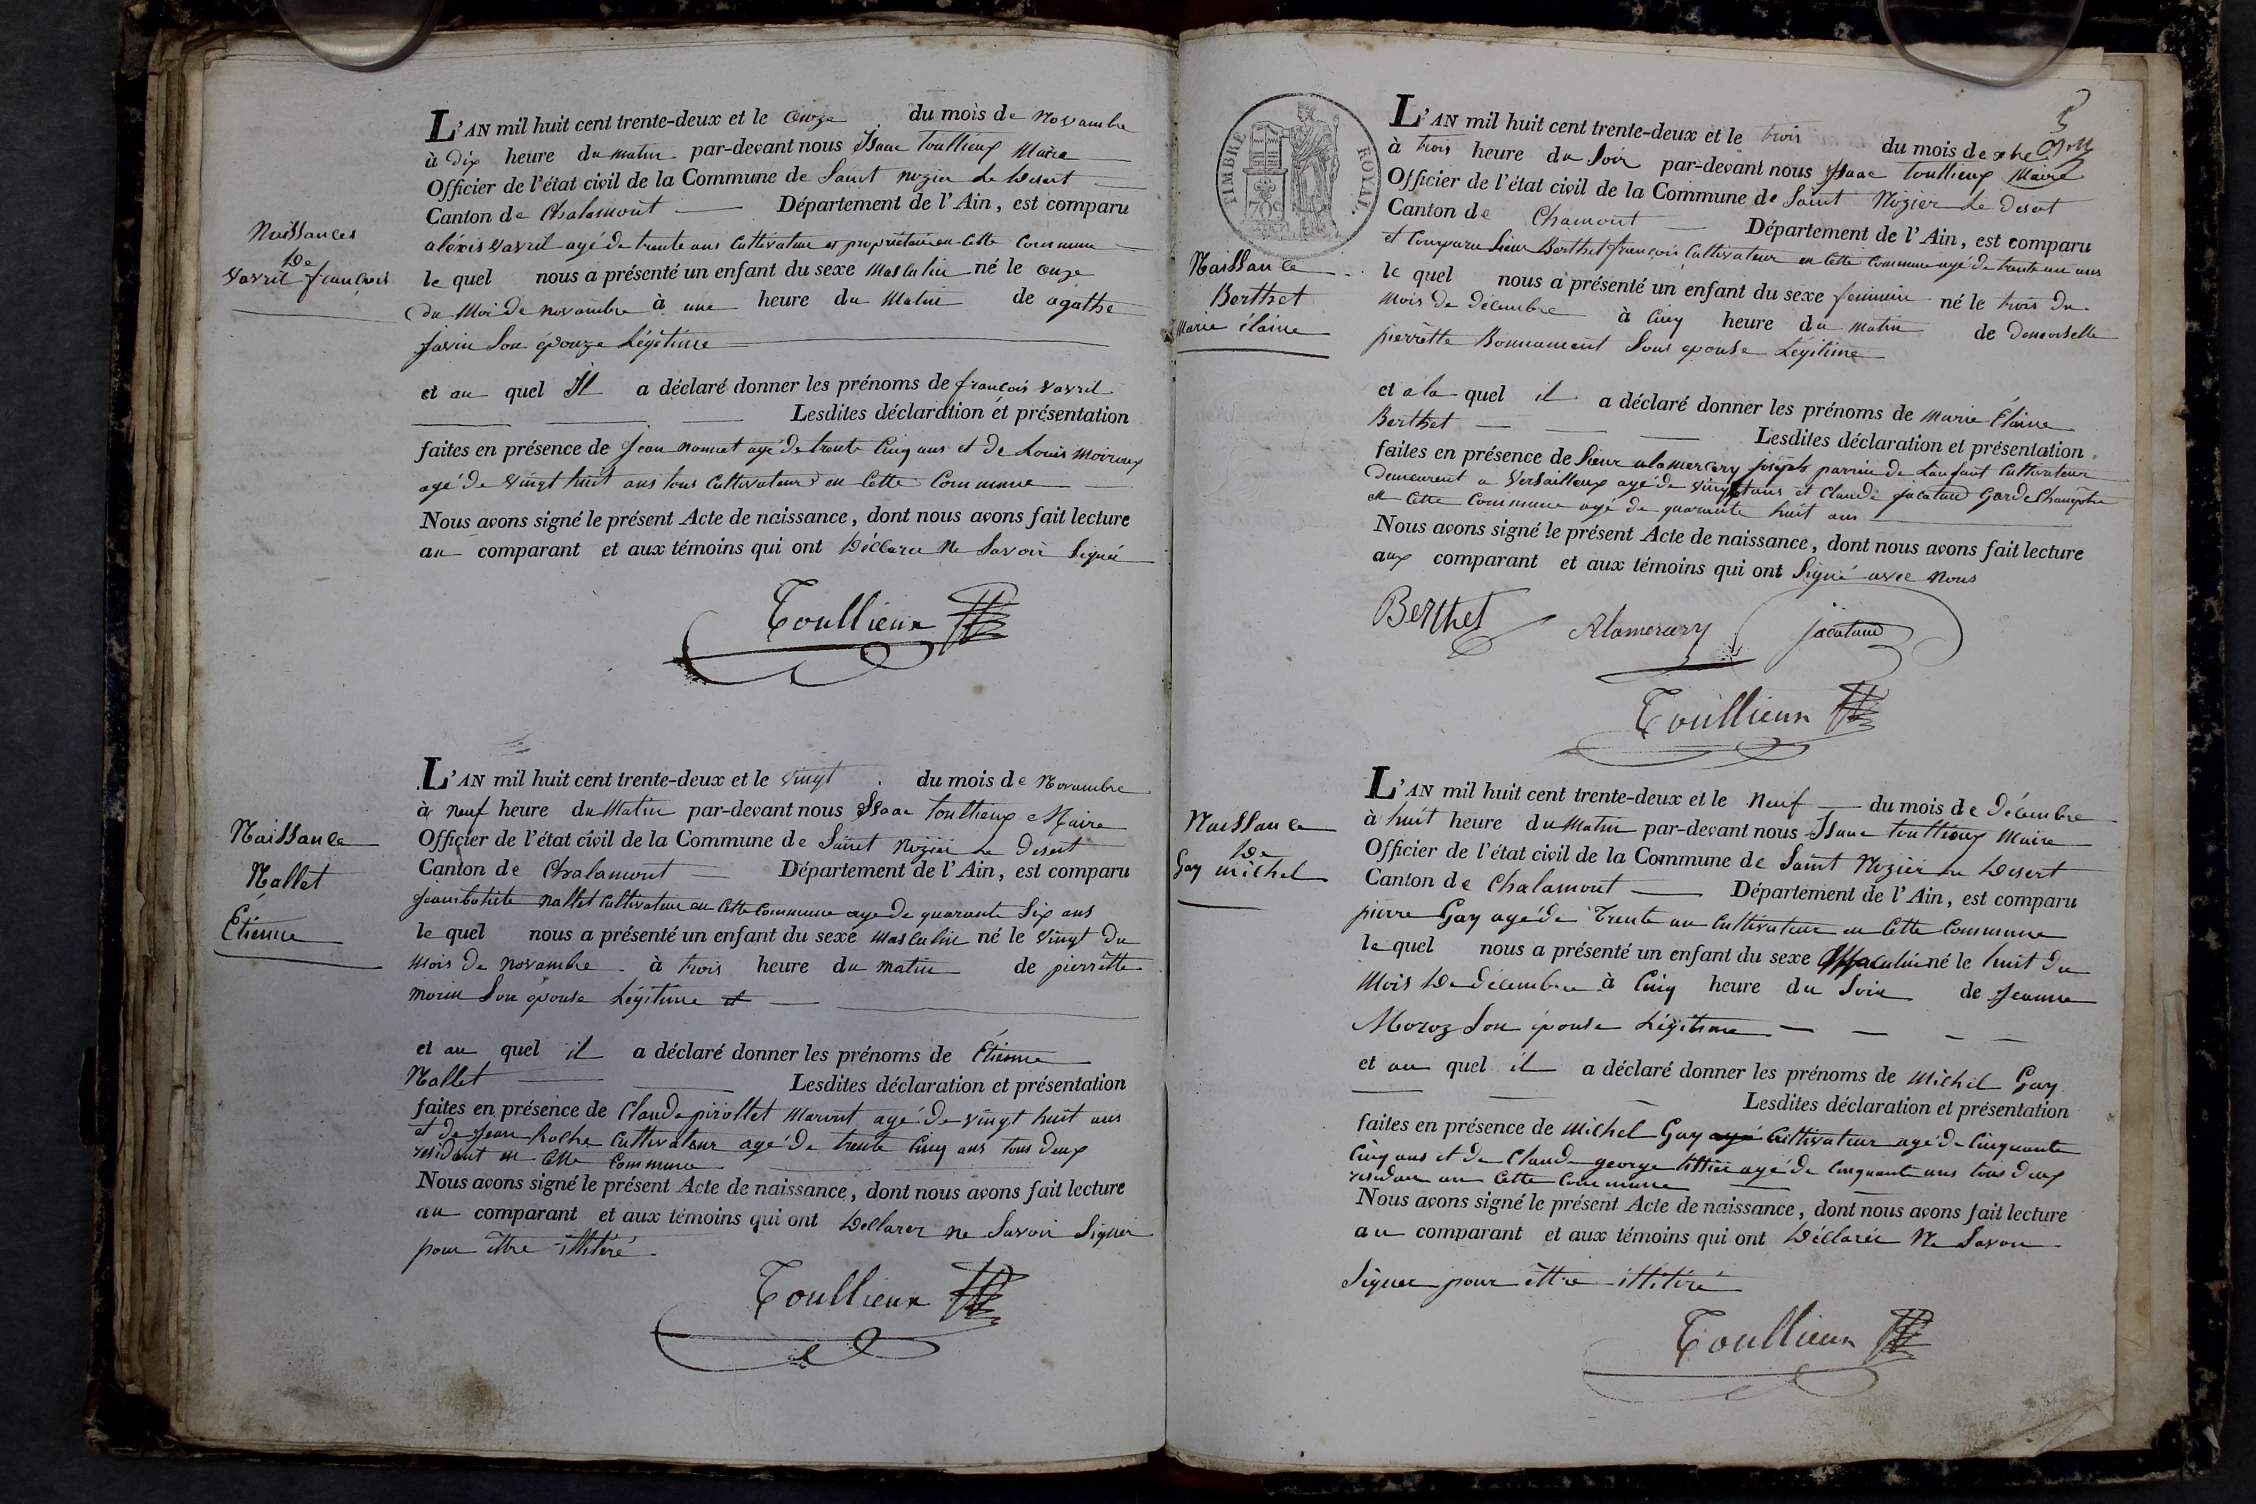 L'AN mil huit cent trente-deux et le onze du mois de Novambre
à dix heure du matin par-devant nous Isaac toullieux Maire
Officier de l'état civil de la Commune de Saint nizier Le Desert
Canton de Chalamont Département de l'Ain, est comparu
aléxis vavril agé de trente ans Cultivateur et propriétaire en Cette Commune
le quel nous a présenté un enfant du sexe masculin né le onze
du Moi de novambre à une heure du Matin de agathe
favin Son épouze Légitime
et au quel Il a déclaré donner les prénoms de françois vavril
Lesdites déclaration et présentation
faites en présence de Jean nonnet agé de trente Cinq ans et de Louis moiroux
agé de vingt huit ans tous Cultivateur en Cette Commune
Nous avons signé le présent Acte de naissance, dont nous avons fait lecture
au comparant et aux témoins qui ont Déclaré Ne Savoir Signé
Toullieux
Naissances
De
vavril françois
L'AN mil huit cent trente-deux et le vingt du mois de Novambre
à neuf heure du Matin par-devant nous Isaac toullieux Maire
Officier de l'état civil de la Commune de Saint nizier Le Desert
Canton de Chalamont Département de l'Ain, est comparu
jeanbatiste nallet Cultivateur en Cette Commune agé de quarante Six ans
le quel nous a présenté un enfant du sexe masculin né le vingt du
mois de novambre à trois heure du matin de pierrette
morin Son épouse Légitime et
et au quel il a déclaré donner les prénoms de Étienne
Nallet Lesdites déclaration et présentation
faites en présence de Claude pirollet agé de vingt huit ans
et de Jean Roche Cultivateur agé de trente Cinq ans tous deux
résidant en Cette Commune
Nous avons signé le présent Acte de naissance, dont nous avons fait lecture
au comparant et aux témoins qui ont Déclarer ne Savoir Signer
pour être illitéré
Toullieux
Naissance
Nallet
Étienne
TIMBRE ROYAL.
70c
L'AN mil huit cent trente-deux et le trois du mois de xbre
à trois heure du Soir par-devant nous Isaac toullieux Maire
Officier de l'état civil de la Commune de Saint Nizier Le Desert
Canton de Chamont Département de l'Ain, est comparu
et Comparu Sieur Berthet françois Cultivateur en Cette Commune agé de trente un ans
le quel nous a présenté un enfant du sexe féminin né le trois du
mois de décembre à Cinq heure du matin de demoiselle
pierrette Bonnament Sous épouse Légitime
et a la quel il a déclaré donner les prénoms de Marie Élaine
Berthet Lesdites déclaration et présentation
faites en présence de Sieur alamercery joseph parrin de L'enfant Cultivateur
Demeurent a Versailleux agé de vingt ans et Claude jacatand Garde Champêtre
en Cette Commune agé de quarante huit ans
Nous avons signé le présent Acte de naissance, dont nous avons fait lecture
aux comparant et aux témoins qui ont Signé avec Nous
Berthet Alamercery jacatand
Toullieux
Naissance
Berthet
Marie élaine
L'AN mil huit cent trente-deux et le Neuf du mois de Décembre
à huit heure du Matin par-devant nous Isaac toullieux Maire
Officier de l'état civil de la Commune de Saint Nizier Le Desert
Canton de Chalamont Département de l'Ain, est comparu
pierre Gay agé de Trente un Cultivateur en Cette Commune
le quel nous a présenté un enfant du sexe Masculin né le huit du
Mois De décembre à Cinq heure du Soir de Jeanne
Moroz Son épouse Légitime
et au quel il a déclaré donner les prénoms de Michel Gay
Lesdites déclaration et présentation
faites en présence de Michel Gay agé Cultivateur agé de Cinquante
Cinq ans et de Claude george agé de Cinquante ans tous deux
résidan en Cette Commune
Nous avons signé le présent Acte de naissance, dont nous avons fait lecture
au comparant et aux témoins qui ont Déclarer Ne Savoir
Signer pour être illitéré
Toullieux
Naissance
De
Gay michel